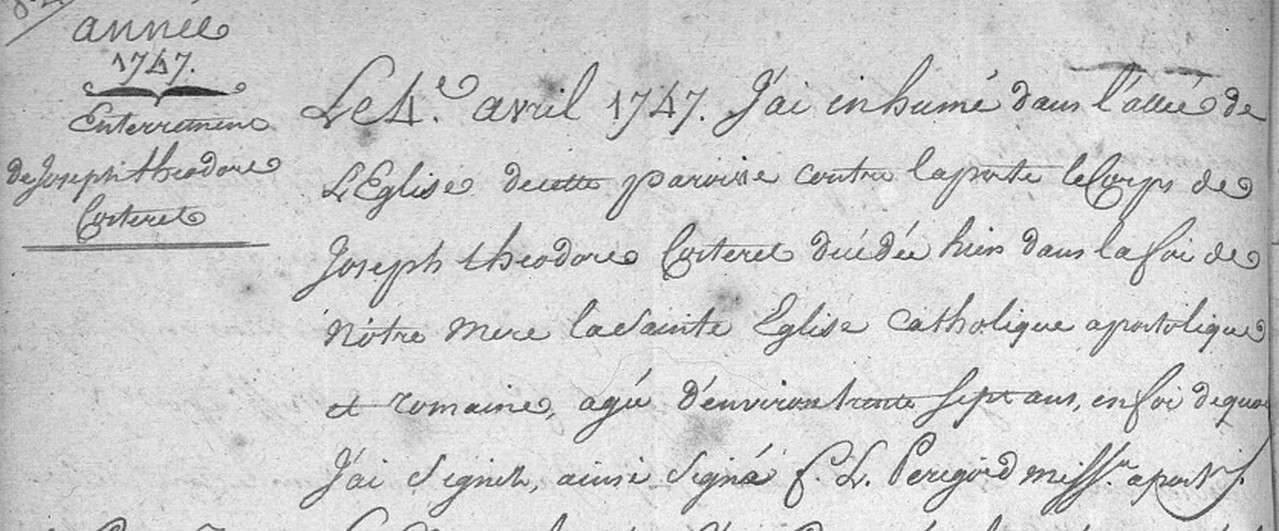 année
1747.
Enterrement
de Joseph theodore
Corteret
Le 4.e avril 1747. J'ai inhumé dans l'allée de
L'Eglise de cette paroisse contre la porte le Corps de
Joseph theodore Corteret décédée hier dans la foi de
Nôtre Mere la Sainte Eglise Catholique apostolique
et romaine, agée d'environ trente sept ans, en foi de quoi
J'ai Signé, ainsi Signé f. L. Perigord miss.re apost.